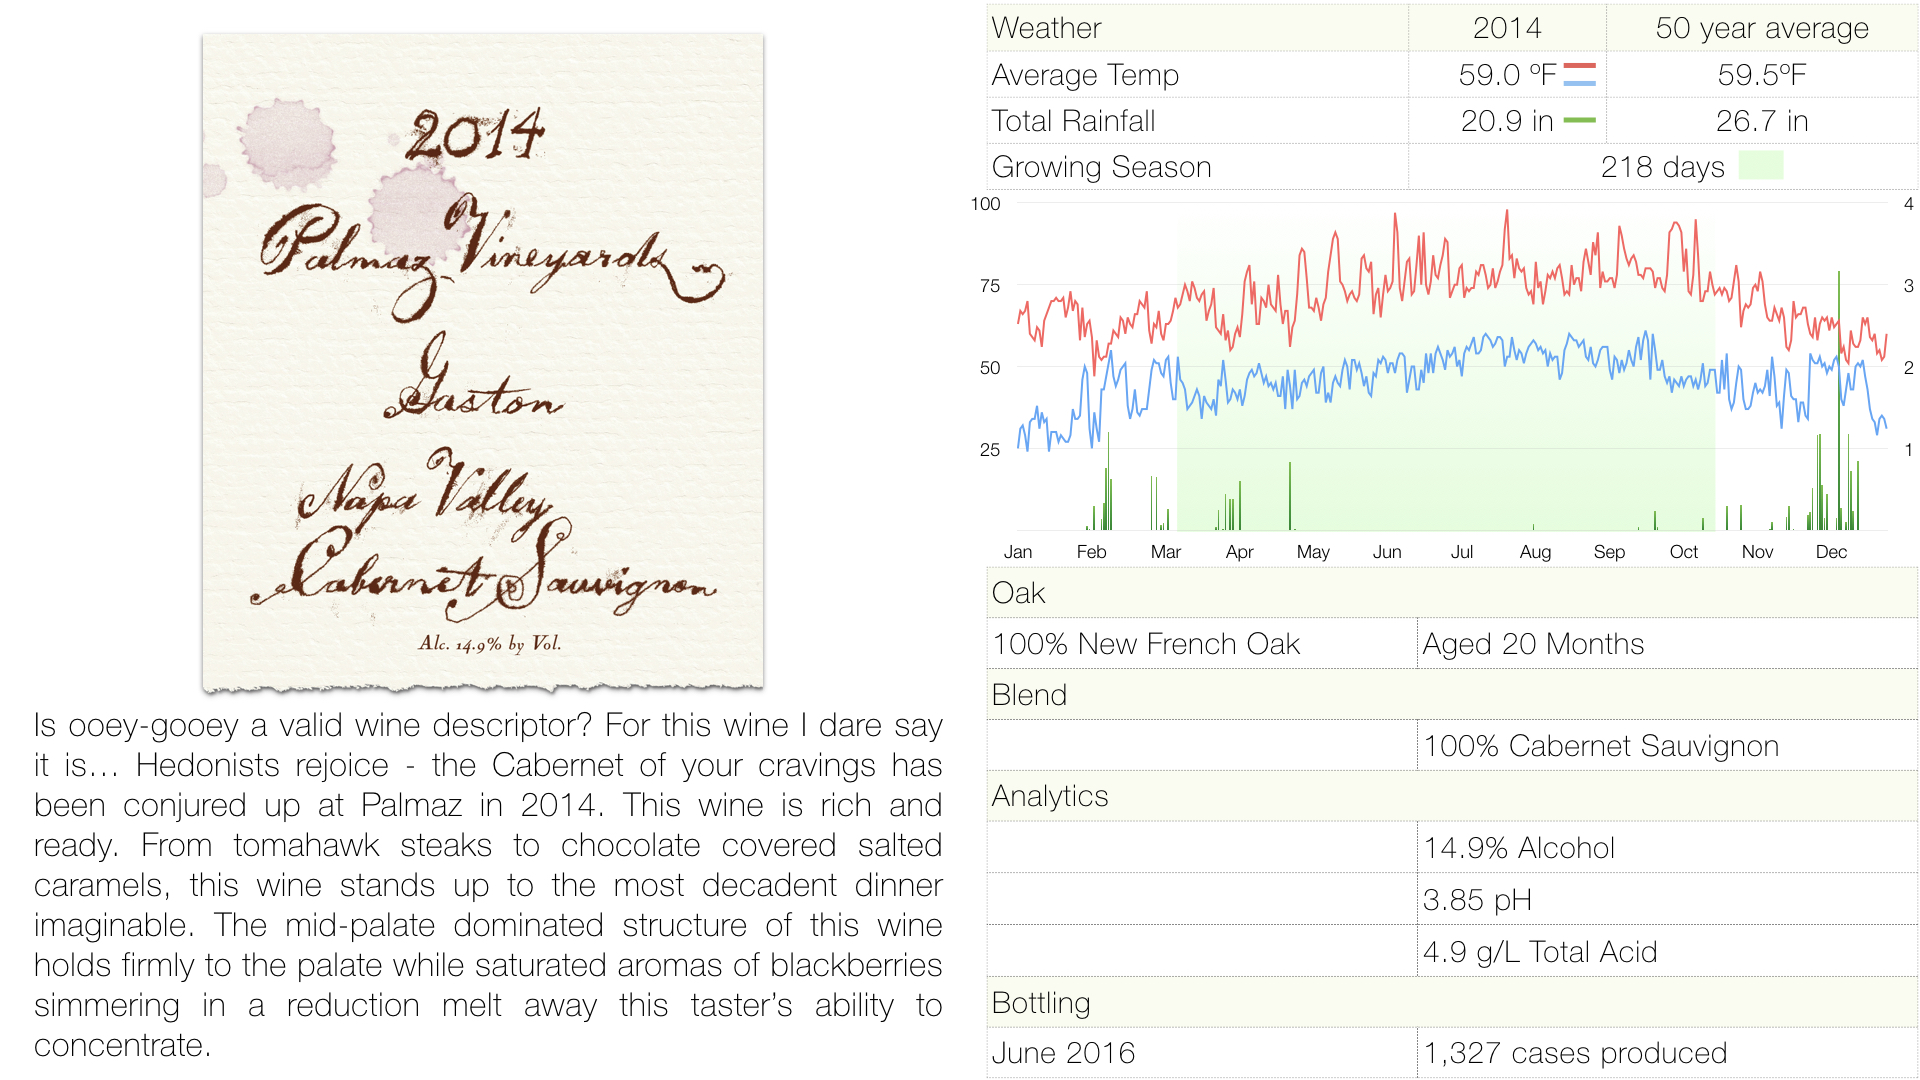 2014
Palmaz Vineyards
Gaston
Napa Valley
Cabernet Sauvignon
Alc. 14.9% by Vol.
Is ooey-gooey a valid wine descriptor? For this wine I dare say
it is... Hedonists rejoice - the Cabernet of your cravings has
been conjured up at Palmaz in 2014. This wine is rich and
ready. From tomahawk steaks to chocolate covered salted
caramels, this wine stands up to the most decadent dinner
imaginable. The mid-palate dominated structure of this wine
holds firmly to the palate while saturated aromas of blackberries
simmering in a reduction melt away this taster’s ability to
concentrate.
Weather 2014 50 year average
Average Temp 59.0 ºF 59.5ºF
Total Rainfall 20.9 in 26.7 in
Growing Season 218 days
100 4
75 3
50 2
25 1
Jan Feb Mar Apr May Jun Jul Aug Sep Oct Nov Dec
Oak
100% New French Oak Aged 20 Months
Blend
100% Cabernet Sauvignon
Analytics
14.9% Alcohol
3.85 pH
4.9 g/L Total Acid
Bottling
June 2016 1,327 cases produced